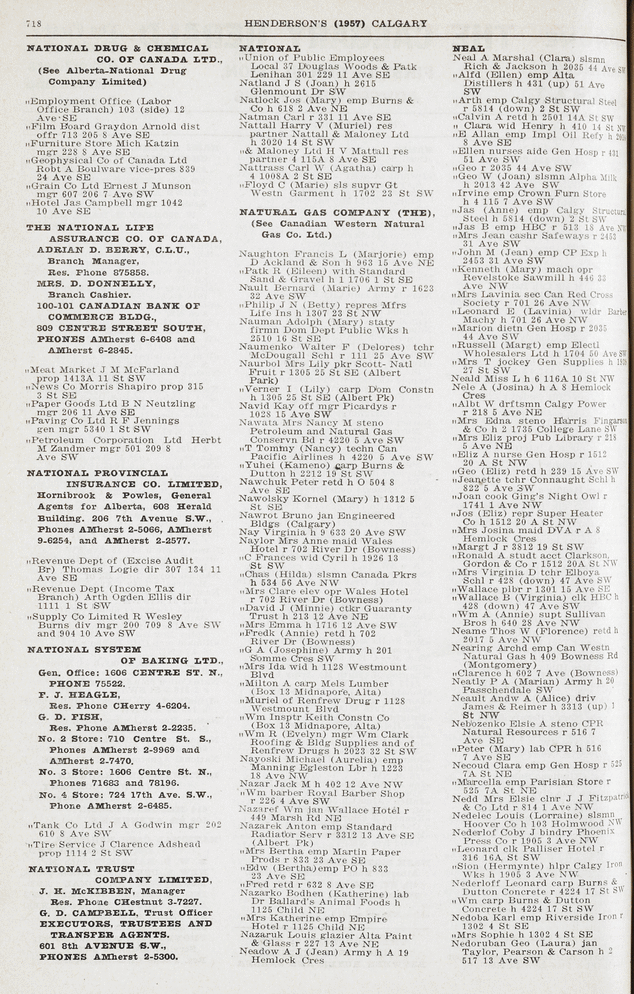 718
HENDERSON'S (1957) CALGARY
NATIONAL DRUG & CHEMICAL
CO. OF CANADA LTD.,
(See Alberta-National Drug
Company Limited)
"Employment Office (Labor
Office Branch) 103 (side) 12
Ave SE
"Film Board Graydon Arnold dist
offr 713 205 8 Ave SE
"Furniture Store Mich Katzin
mgr 228 8 Ave SE
"Geophysical Co of Canada Ltd
Robt A Boulware vice-pres 839
24 Ave SE
"Grain Co Ltd Ernest J Munson
mgr 607 206 7 Ave SW
"Hotel Jas Campbell mgr 1042
10 Ave SE
THE NATIONAL LIFE
ASSURANCE CO. OF CANADA,
ADRIAN D. BERRY, C.L.U.,
Branch Manager,
Res. Phone 875858.
MRS. D. DONNELLY,
Branch Cashier.
100-101 CANADIAN BANK OF
COMMERCE BLDG.,
809 CENTRE STREET SOUTH,
PHONES AMherst 6-6408 and
AMherst 6-2845.
"Meat Market J M McFarland
prop 1413A 11 St SW
"News Co Morris Shapiro prop 315
3 St SE
"Paper Goods Ltd B N Neutzling
mgr 206 11 Ave SE
"Paving Co Ltd R F Jennings
gen mgr 5340 1 St SW
"Petroleum Corporation Ltd Herbt
M Zandmer mgr 501 209 8
Ave SW
NATIONAL PROVINCIAL
INSURANCE CO. LIMITED,
Hornibrook & Powles, General
Agents for Alberta, 608 Herald
Building. 206 7th Avenue S.W.,
Phones AMherst 2-5066, AMherst
9-6254, and AMherst 2-2577.
"Revenue Dept of (Excise Audit
Br) Thomas Logie dir 307 134 11
Ave SE
"Revenue Dept (Income Tax
Branch) Arth Ogden Ellis dir
1111 1 St SW
"Supply Co Limited R Wesley
Burns div mgr 200 709 8 Ave SW
and 904 10 Ave SW
NATIONAL SYSTEM
OF BAKING LTD.,
Gen. Office: 1606 CENTRE ST. N.,
PHONE 75522.
F. J. HEAGLE,
Res. Phone CHerry 4-6204.
G. D. FISH,
Res. Phone AMherst 2-2235.
No. 2 Store: 710 Centre St. S.,
Phones AMherst 2-9969 and
AMherst 2-7470.
No. 3 Store: 1606 Centre St. N.,
Phones 71683 and 78196.
No. 4 Store: 724 17th Ave. S.W.,
Phone AMherst 2-6485.
"Tank Co Ltd J A Godwin mgr 202
610 8 Ave SW
"Tire Service J Clarence Adshead
prop 1114 2 St SW
NATIONAL TRUST
COMPANY LIMITED,
J. H. McKIBBEN, Manager
Res. Phone CHestnut 3-7227.
G. D. CAMPBELL, Trust Officer
EXECUTORS, TRUSTEES AND
TRANSFER AGENTS.
601 8th AVENUE S.W.,
PHONES AMherst 2-5300.
NATIONAL
"Union of Public Employees
Local 37 Douglas Woods & Patk
Lenihan 301 229 11 Ave SE
Natland J S (Joan) h 2615
Glenmount Dr SW
Natlock Jos (Mary) emp Burns &
Co h 618 2 Ave NE
Natman Carl r 331 11 Ave SE
Nattall Harry V (Muriel) res
partner Nattall & Maloney Ltd
h 3020 14 St SW
"& Maloney Ltd H V Mattall res
partner 4 115A 8 Ave SE
Nattrass Carl W (Agatha) carp h
4 1008A 2 St SE
"Floyd C (Marie) sls supvr Gt
Westn Garment h 1702 23 St SW
NATURAL GAS COMPANY (THE),
(See Canadian Western Natural
Gas Co. Ltd.)
Naughton Francis L (Marjorie) emp
D Ackland & Son h 963 15 Ave NE
"Patk R (Eileen) with Standard
Sand & Gravel h 1 1706 1 St SE
Nault Bernard (Marie) Army r 1623
32 Ave SW
"Philip J N (Betty) repres Mfrs
Life Ins h 1307 23 St NW
Nauman Adolph (Mary) staty
firmn Dom Dept Public Wks h
2510 16 St SE
Naumenko Walter F (Delores) tchr
McDougall Schl r 111 25 Ave SW
Naurbol Mrs Lily pkr Scott- Natl
Fruit r 1305 25 St SE (Albert
Park)
"Verner I (Lily) carp Dom Constn
h 1305 25 St SE (Albert Pk)
Navid Kay off mgr Picardys r
1028 15 Ave SW
Nawata Mrs Nancy M steno
Petroleum and Natural Gas
Conservn Bd r 4220 5 Ave SW
"T Tommy (Nancy) techn Can
Pacific Airlines h 4220 5 Ave SW
"Yuhei (Kameno) carp Burns &
Dutton h 2212 19 St SW
Nawchuk Peter retd h O 504 8
Ave SE
Nawolsky Kornel (Mary) h 1312 5
St SE
Nawrot Bruno jan Engineered
Bldgs (Calgary)
Nay Virginia h 9 633 20 Ave SW
Naylor Mrs Anne maid Wales
Hotel r 702 River Dr (Bowness)
"C Frances wid Cyril h 1926 13
St SW
"Chas (Hilda) slsmn Canada Pkrs
h 534 56 Ave NW
"Mrs Clare elev opr Wales Hotel
r 702 River Dr (Bowness)
"David J (Minnie) ctkr Guaranty
Trust h 213 12 Ave NE
"Mrs Emma h 1716 12 Ave SW
"Fredk (Annie) retd h 702
River Dr (Bowness)
"G A (Josephine) Army h 201
Somme Cres SW
"Mrs Ida wid h 1128 Westmount
Blvd
"Milton A carp Mels Lumber
(Box 13 Midnapore, Alta)
"Muriel of Renfrew Drug r 1128
Westmount Blvd
"Wm Insptr Keith Constn Co
(Box 13 Midnapore, Alta)
"Wm R (Evelyn) mgr Wm Clark
Roofing & Bldg Supplies and of
Renfrew Drugs h 2023 32 St SW
Nayoski Michael (Aurelia) emp
Manning Egleston Lbr h 1223
18 Ave NW
Nazar Jack M h 402 12 Ave NW
"Wm barber Royal Barber Shop
r 226 4 Ave SW
Nazaref Wm jan Wallace Hotel r
449 Marsh Rd NE
Nazarek Anton emp Standard
Radiator Serv r 3312 13 Ave SE
(Albert Pk)
"Mrs Bertha emp Martin Paper
Prods r 833 23 Ave SE
"Edw (Bertha) emp PO h 833
23 Ave SE
"Fred retd r 632 8 Ave SE
Nazarko Bodhen (Katherine) lab
Dr Ballard's Animal Foods h
1125 Child NE
"Mrs Katherine emp Empire
Hotel r 1125 Child NE
Nazaruk Louis glazier Alta Paint
& Glass r 227 13 Ave NE
Neadow A J (Jean) Army h A 19
Hemlock Cres
NEAL
Neal A Marshal (Clara) slsmn
Rich & Jackson h 2035 44 Ave SW
"Alfd (Ellen) emp Alta
Distillers h 431 (up) 51 Ave
SW
"Arth emp Calgy Structural Steel
r 5814 (down) 2 St SW
"Calvin A retd h 2501 14A St SW
"Clara wid Henry h 410 14 St NW
"E Allan emp Impl Oil Refy h
8 Ave SE
"Ellen nurses aide Gen Hosp r 431
51 Ave SW
"Geo r 2035 44 Ave SW
"Geo W (Joan) slsmn Alpha Milk
h 2013 42 Ave SW
"Irvine emp Crown Furn Store
h 4 115 7 Ave SW
"Jas (Anne) emp Calgy Structural
Steel h 5814 (down) 2 St SW
"Jas B emp HBC r 513 18 Ave NW
"Mrs Jean cashr Safeways r 2453
31 Ave SW
"John M (Jean) emp CP Exp h
2453 31 Ave SW
"Kenneth (Mary) mach opr
Revelstoke Sawmill h 446 33
Ave NW
"Mrs Lavinia sec Can Red Cross
Society r 701 26 Ave NW
"Leonard E (Lavinia) wldr Barber
Machy h 701 26 Ave NW
"Marion dietn Gen Hosp r 2035
44 Ave SW
"Russell (Margt) emp Electl
Wholesalers Ltd h 1704 50 Ave SW
"Mrs T jockey Gen Supplies h
27 St SW
Neald Miss L h 6 116A 10 St NW
Nele A (Josina) h A 8 Hemlock
Cres
"Albt W drftsmn Calgy Power
r 218 5 Ave NE
"Mrs Edna steno Harris Fingarson
& Co h 2 1735 College Lane SW
"Mrs Eliz proj Pub Library r 218
5 Ave NE
"Eliz A nurse Gen Hosp r 1512
20 A St NW
"Geo (Eliz) retd h 239 15 Ave SW
"Jeanette tchr Connaught Schl h
822 5 Ave SW
"Joan cook Ging's Night Owl r
1741 1 Ave NW
"Jos (Eliz) repr Super Heater
Co h 1512 20 A St NW
"Mrs Josina maid DVA r A 8
Hemlock Cres
"Margt J r 3812 19 St SW
"Ronald A studt acct Clarkson,
Gordon & Co r 1512 20A St NW
"Mrs Virginia D tchr Elboya
Schl r 428 (down) 47 Ave SW
"Wallace plbr r 1301 15 Ave SE
"Wallace B (Virginia) clk HBC h
428 (down) 47 Ave SW
"Wm A (Annie) supt Sullivan
Bros h 640 28 Ave NW
Neame Thos W (Florence) retd h
2017 5 Ave NW
Nearing Archd emp Can Westn
Natural Gas h 409 Bowness Rd
(Montgomery)
"Clarence h 602 7 Ave (Bowness)
Neatly P A (Marian) Army h 20
Passchendale SW
Neault Andw A (Alice) driv
James & Reimer h 3313 (up) 1
St NW
Nebozenko Elsie A steno CPR
Natural Resources r 516 7
Ave SE
"Peter (Mary) lab CPR h 516
7 Ave SE
Necoud Clara emp Gen Hosp r 525
7A St NE
"Marcella emp Parisian Store r
525 7A St NE
Nedd Mrs Elsie clnr J J Fitzpatrick
& Co Ltd r 814 1 Ave NW
Nedelec Louis (Lorraine) slsmn
Hoover Co h 103 Holmwood NW
Nederlof Coby J bindry Phoenix
Press Co r 1905 3 Ave NW
"Leonard clk Palliser Hotel r
316 16A St NW
"Sion (Hermynte) hlpr Calgy Iron
Wks h 1905 3 Ave NW
Nederloff Leonard carp Burns &
Dutton Concrete r 4224 17 St SW
"Wm carp Burns & Dutton
Concrete h 4224 17 St SW
Nedoba Karl emp Riverside Iron r
1302 4 St SE
"Mrs Sophie h 1302 4 St SE
Nedoruban Geo (Laura) jan
Taylor, Pearson & Carson h 2
517 13 Ave SW